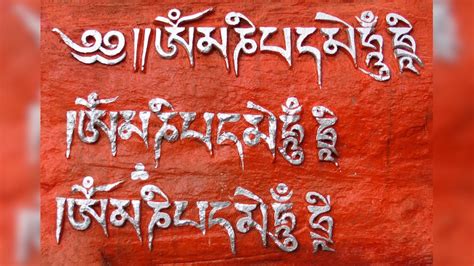 ༄༅།།ཨོཾམཎིཔདམེཧཱུྃཧྲི
།ཨོཾམཎིཔདམེཧཱུྃཧྲི
།ཨོཾམཎིཔདམེཧཱུྃཧྲི